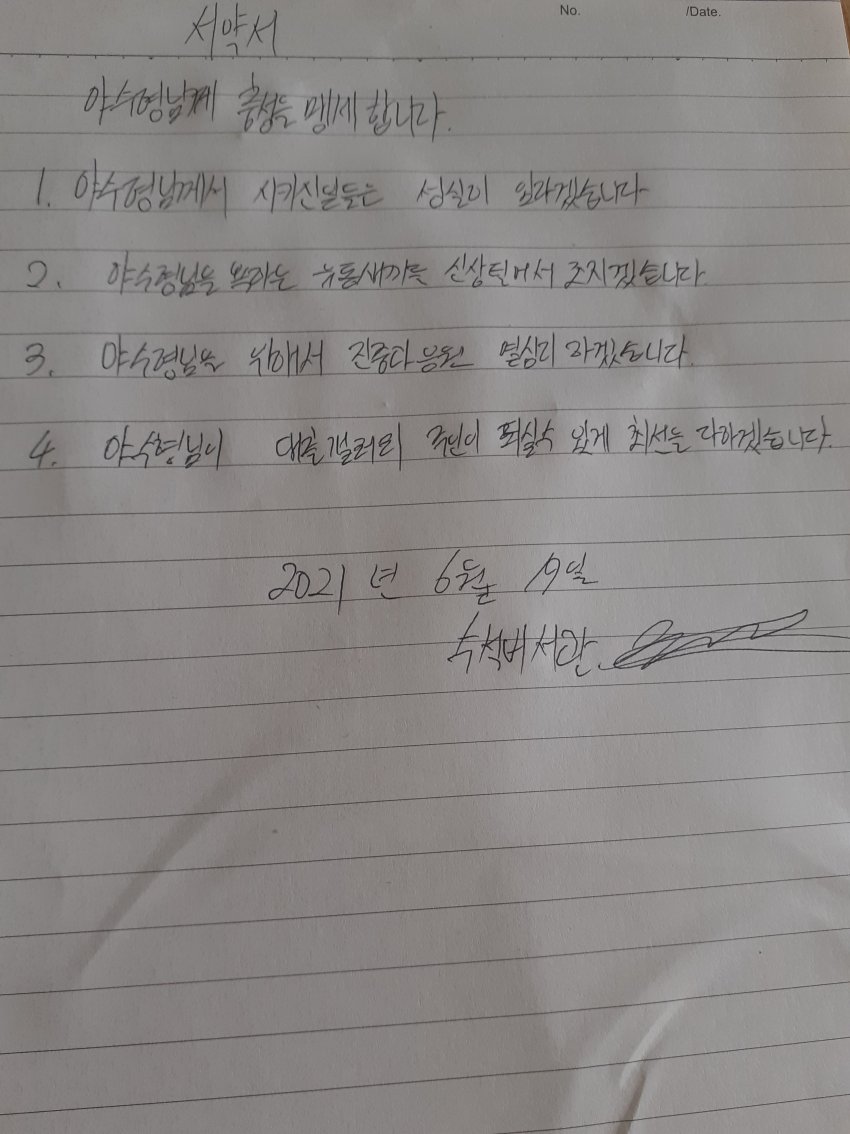 No. /Date.
서약서
야수형님께 충성을 맹세합니다.
1. 야수형님께서 시키신일들은 성실이 일하겠습니다
2. 야수형님을 욕하는 유통새끼들 신상털어서 조지겠습니다.
3. 야수형님을 위해서 진중다 응원 열심히 하겠습니다.
4. 야수형님이 대출갤러리 주인이 되실수 있게 최선을 다하겠습니다.
2021년 6월 19일
수석비서관.